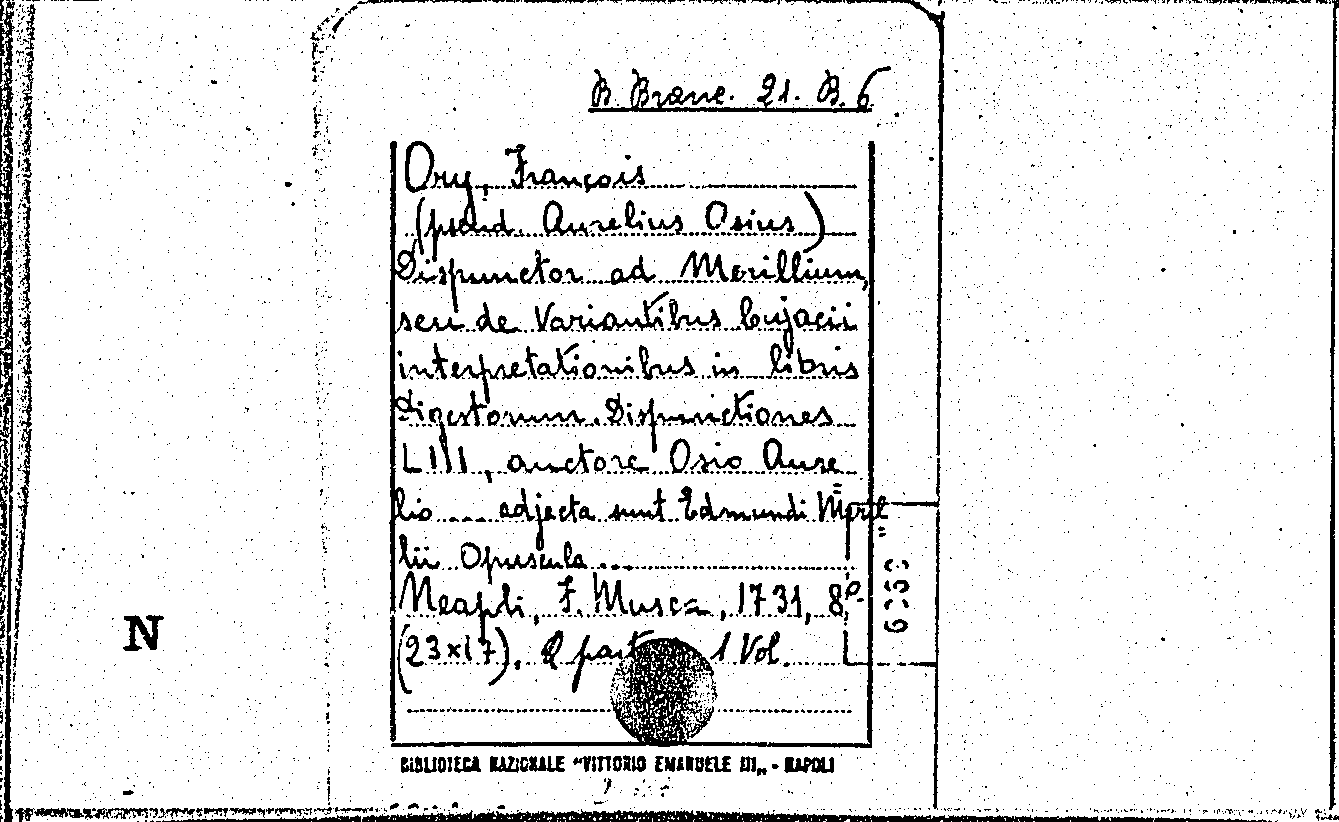 B. Branc. 21. B. 6
Ory, François
(pseud. Aurelius Osius)
Dispunctor ad Merillium,
seu de Variantibus Cujacii
interpretationibus in libris
Digestorum. Dispunctiones
LIII, auctore Osio Aure
lio .... adjecta sunt Edmundi Meril
lii Opuscula ...
Neapoli, F. Musca, 1731, 8º.
(23x17). 2 part 1 Vol.
N
BIBLIOTECA NAZIONALE "VITTORIO EMANUELE III„ - NAPOLI